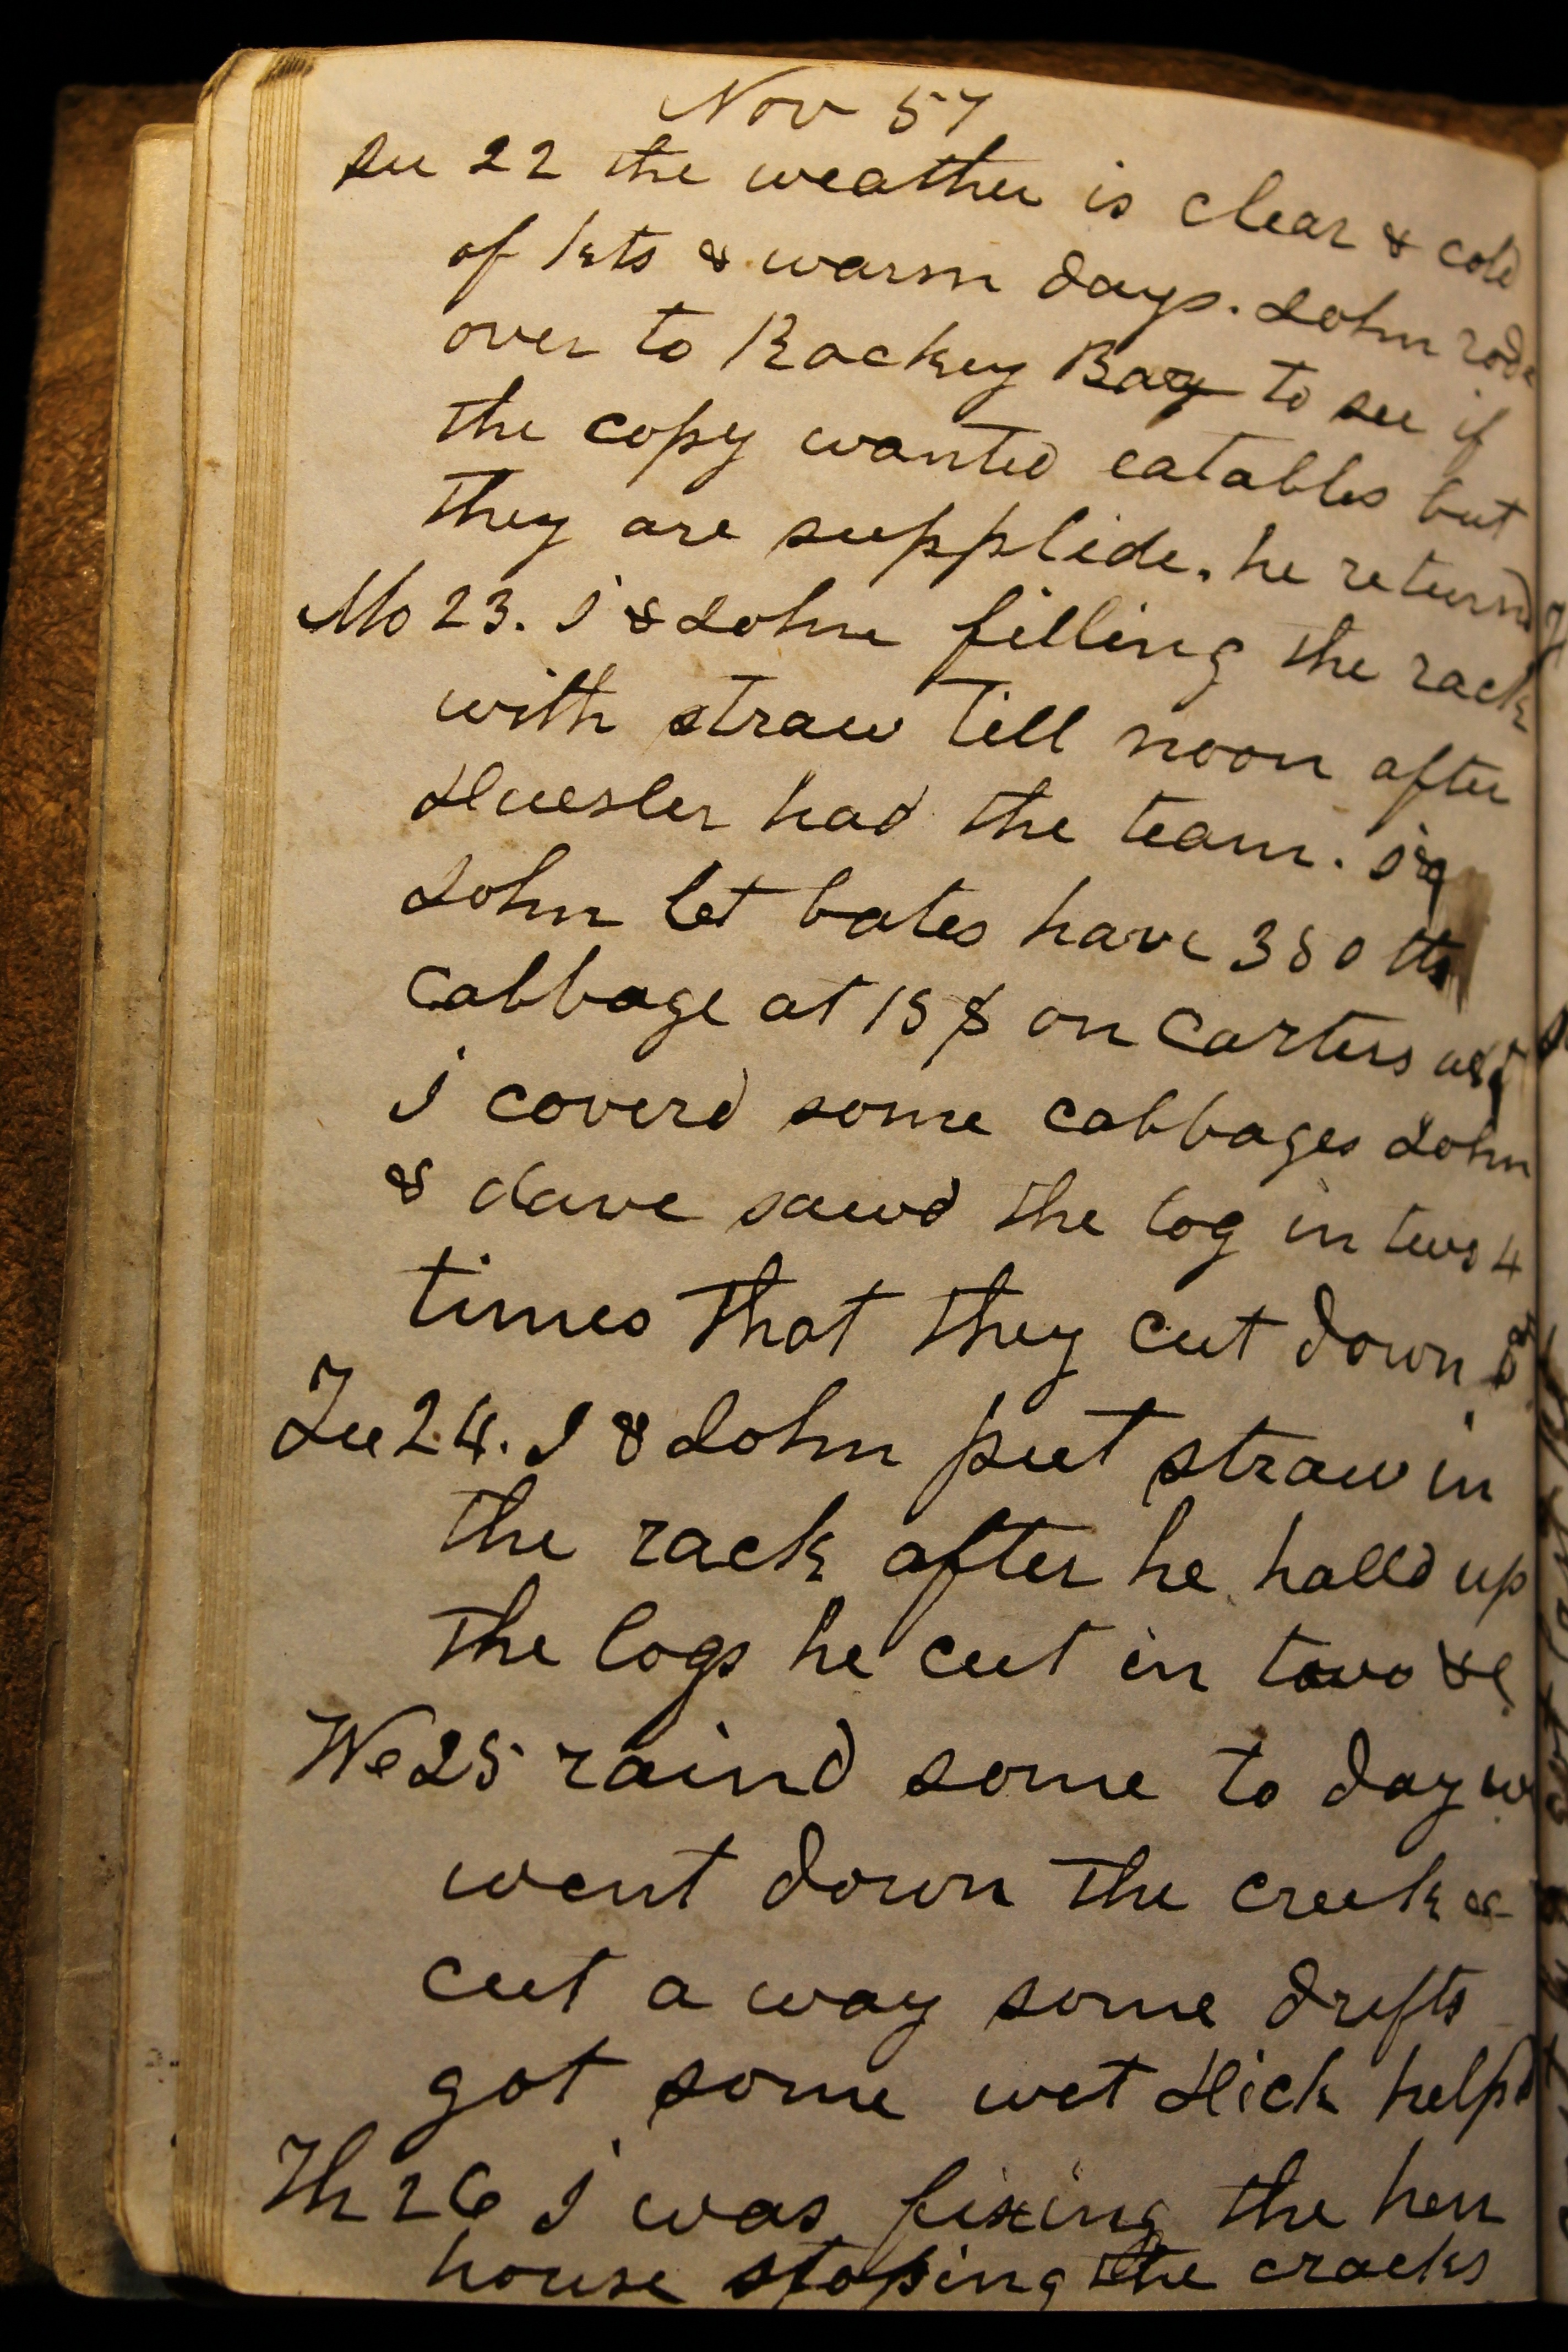 Nov 57
Su 22 the weather is clear & cold
of nts & warm days. John rode
over to Rockey Bay to see if
the copy wanted eatables but
they are supplide. he returnd
Mo 23. I & John filling the rack
with straw till noon after
Huesler had the team.
John let bates have 380 lbs
Cabbage at 15 $ on Carters
I coverd some cabbages John
& dave sawd the log in two 4
times that they cut down
Tu 24. I & John put straw in
the rack after he halld up
the logs he cut in two &c
We 25 raind some to day w
went down the creek &
cut a way some drifts
got some wet Hick helpd
Th 26 I was fixing the hen
house stoping the cracks